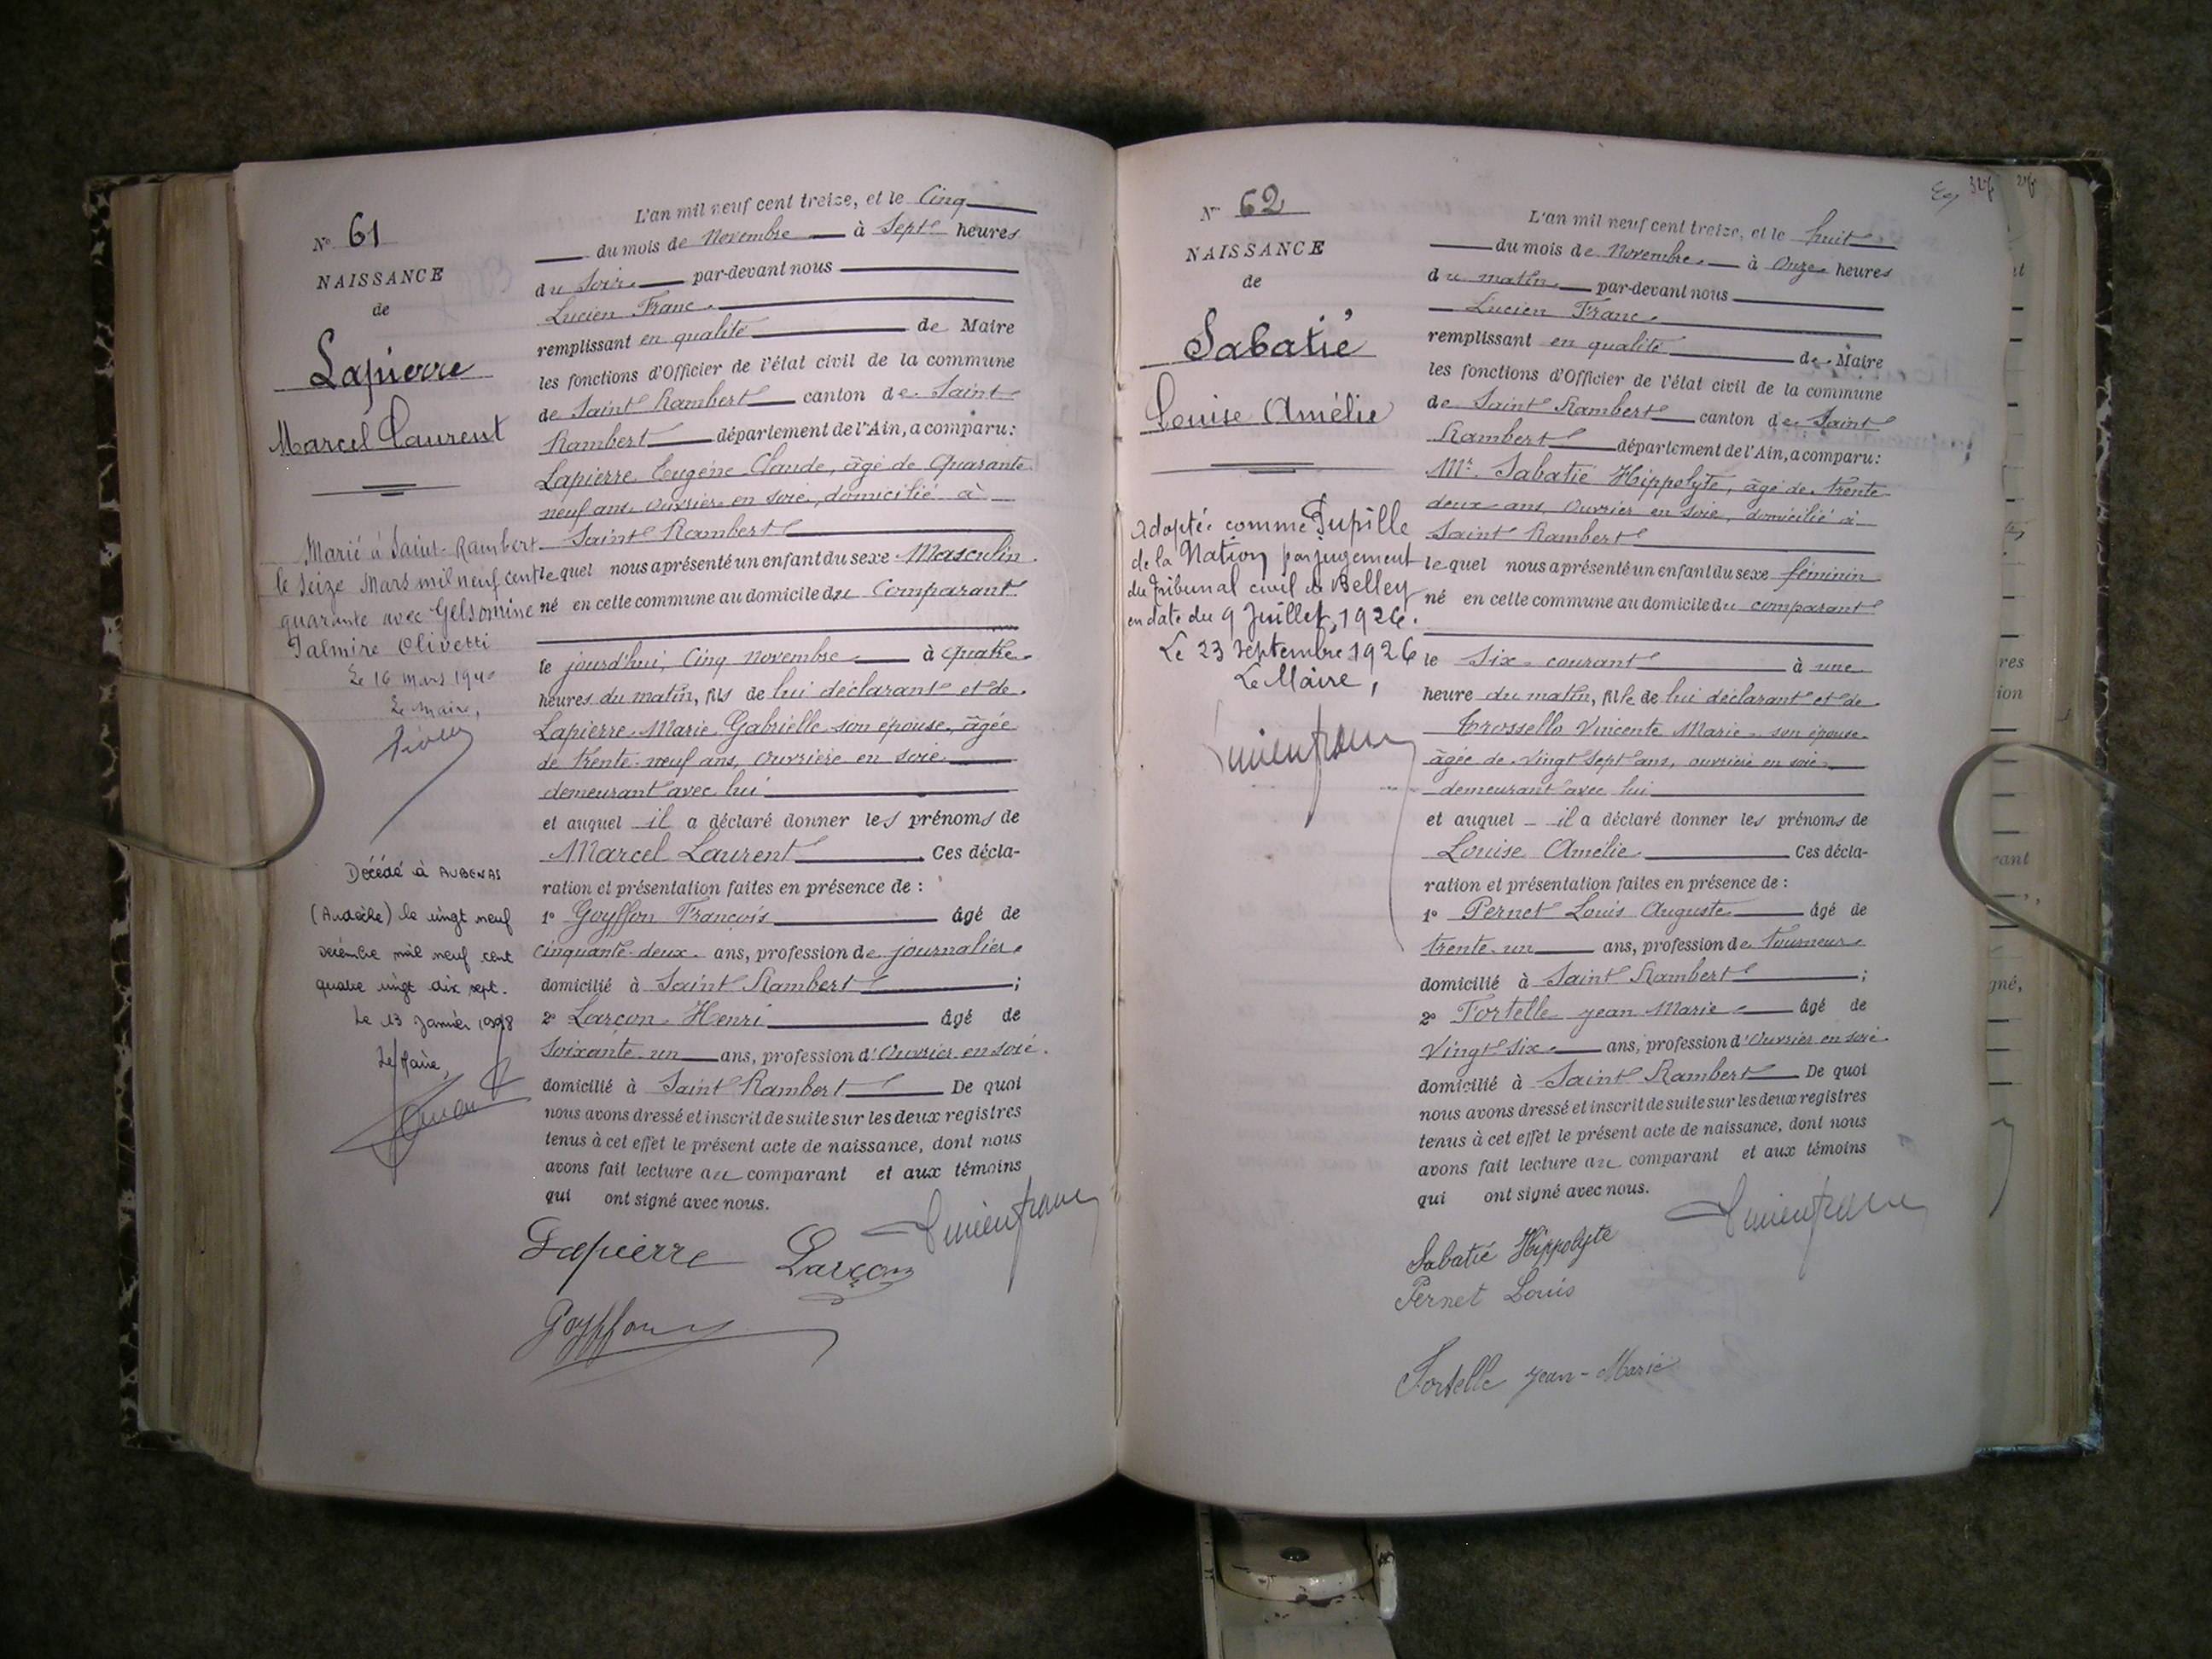 N° 61
NAISSANCE
de
Lapierre
Marcel Laurent
Marié à Saint-Rambert
le seize Mars mil neuf cent
quarante avec Gelsomine
Palmire Olivetti
Le 16 mars 1940
Le Maire,
Décédé à AUBENAS
(Ardèche) le vingt neuf
décembre mil neuf cent
quatre vingt dix sept.
Le 13 Janvier 1998
Le Maire,
L'an mil neuf cent treize, et le Cinq
du mois de Novembre à Sept heures
du Soir par-devant nous
Lucien Franc
remplissant en qualité de Maire
les fonctions d'Officier de l'état civil de la commune
de Saint Rambert canton de Saint
Rambert département de l'Ain, a comparu:
Lapierre Eugène Claude, âgé de Quarante
neuf ans, Ouvrier en soie, domicilié à
Saint Rambert
lequel nous a présenté un enfant du sexe Masculin
né en cette commune au domicile du Comparant
le jourd'hui, Cinq Novembre à quatre
heures du matin, fils de lui déclarant et de
Lapierre Marie Gabrielle son épouse, âgée
de trente-neuf ans, Ouvrière en soie
demeurant avec lui
et auquel il a déclaré donner les prénoms de
Marcel Laurent Ces décla-
ration et présentation faites en présence de :
1° Goyffon François âgé de
cinquante-deux ans, profession de journalier
domicilié à Saint Rambert ;
2° Larçon Henri âgé de
soixante-un ans, profession d'Ouvrier en soie
domicilié à Saint Rambert De quoi
nous avons dressé et inscrit de suite sur les deux registres
tenus à cet effet le présent acte de naissance, dont nous
avons fait lecture au comparant et aux témoins
qui ont signé avec nous.
Lapierre Larçon Lucien Franc
Goyffon
N° 62
NAISSANCE
de
Sabatié
Louise Amélie
Adoptée comme Pupille
de la Nation par jugement
du Tribunal civil de Belley
en date du 9 Juillet 1926.
Le 23 Septembre 1926
Le Maire,
Lucien Franc
L'an mil neuf cent treize, et le huit
du mois de Novembre à Onze heures
du matin par-devant nous
Lucien Franc
remplissant en qualité de Maire
les fonctions d'Officier de l'état civil de la commune
de Saint Rambert canton de Saint
Rambert département de l'Ain, a comparu:
Mr Sabatié Hippolyte, âgé de trente
deux ans, Ouvrier en soie, domicilié à
Saint Rambert
lequel nous a présenté un enfant du sexe féminin
né en cette commune au domicile du comparant
le Six courant à une
heure du matin, fille de lui déclarant et de
Trossello Vincente Marie son épouse
âgée de vingt sept ans, ouvrière en soie
demeurant avec lui
et auquel il a déclaré donner les prénoms de
Louise Amélie Ces décla-
ration et présentation faites en présence de :
1° Pernet Louis Auguste âgé de
trente-un ans, profession de Tourneur
domicilié à Saint Rambert ;
2° Fortelle Jean Marie âgé de
Vingt-six ans, profession d'Ouvrier en soie
domicilié à Saint Rambert De quoi
nous avons dressé et inscrit de suite sur les deux registres
tenus à cet effet le présent acte de naissance, dont nous
avons fait lecture au comparant et aux témoins
qui ont signé avec nous.
Lucien Franc
Sabatié Hippolyte
Pernet Louis
Fortelle Jean-Marie